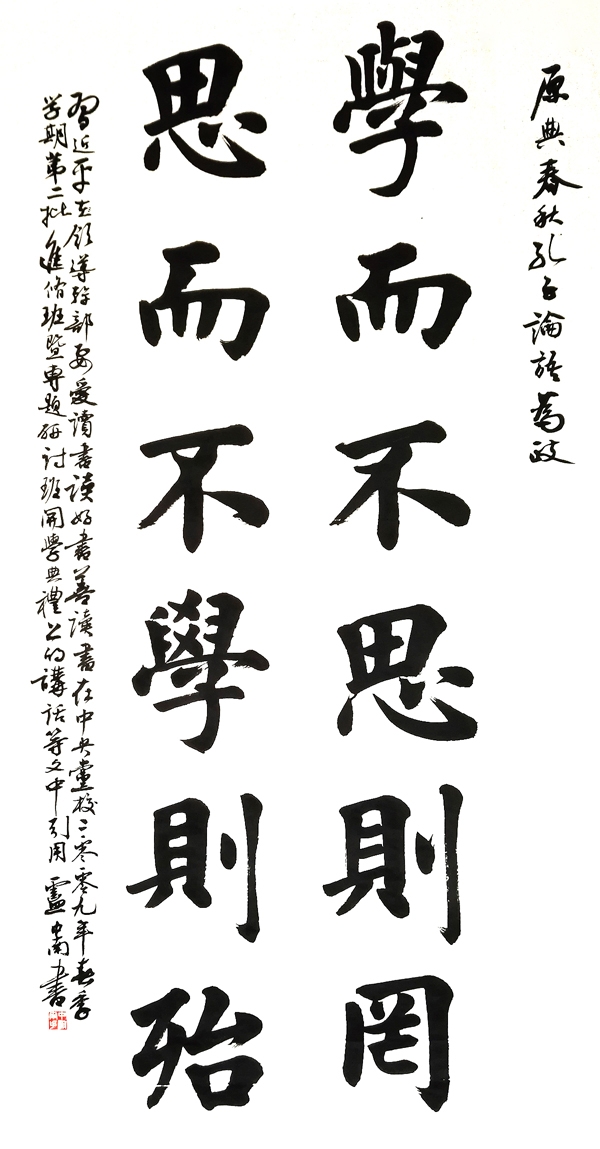 原典春秋孔子論語為政
學而不思則罔
思而不學則殆
習近平在領導幹部要愛讀書讀好書善讀書在中央黨校二零零九年春季
学期第二批進脩班暨專題研討班開學典禮上的講話等文中引用 盧中南書